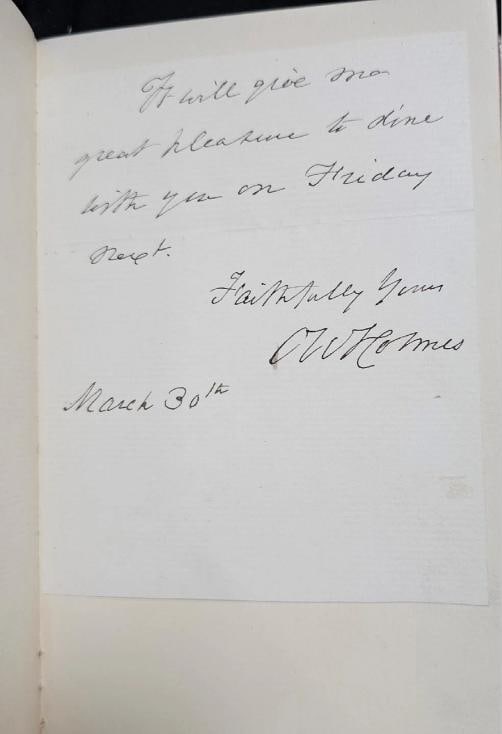 It will give me
great pleasure to dine
with you on Friday
next.
Faithfully Yours
O W Holmes
March 30th